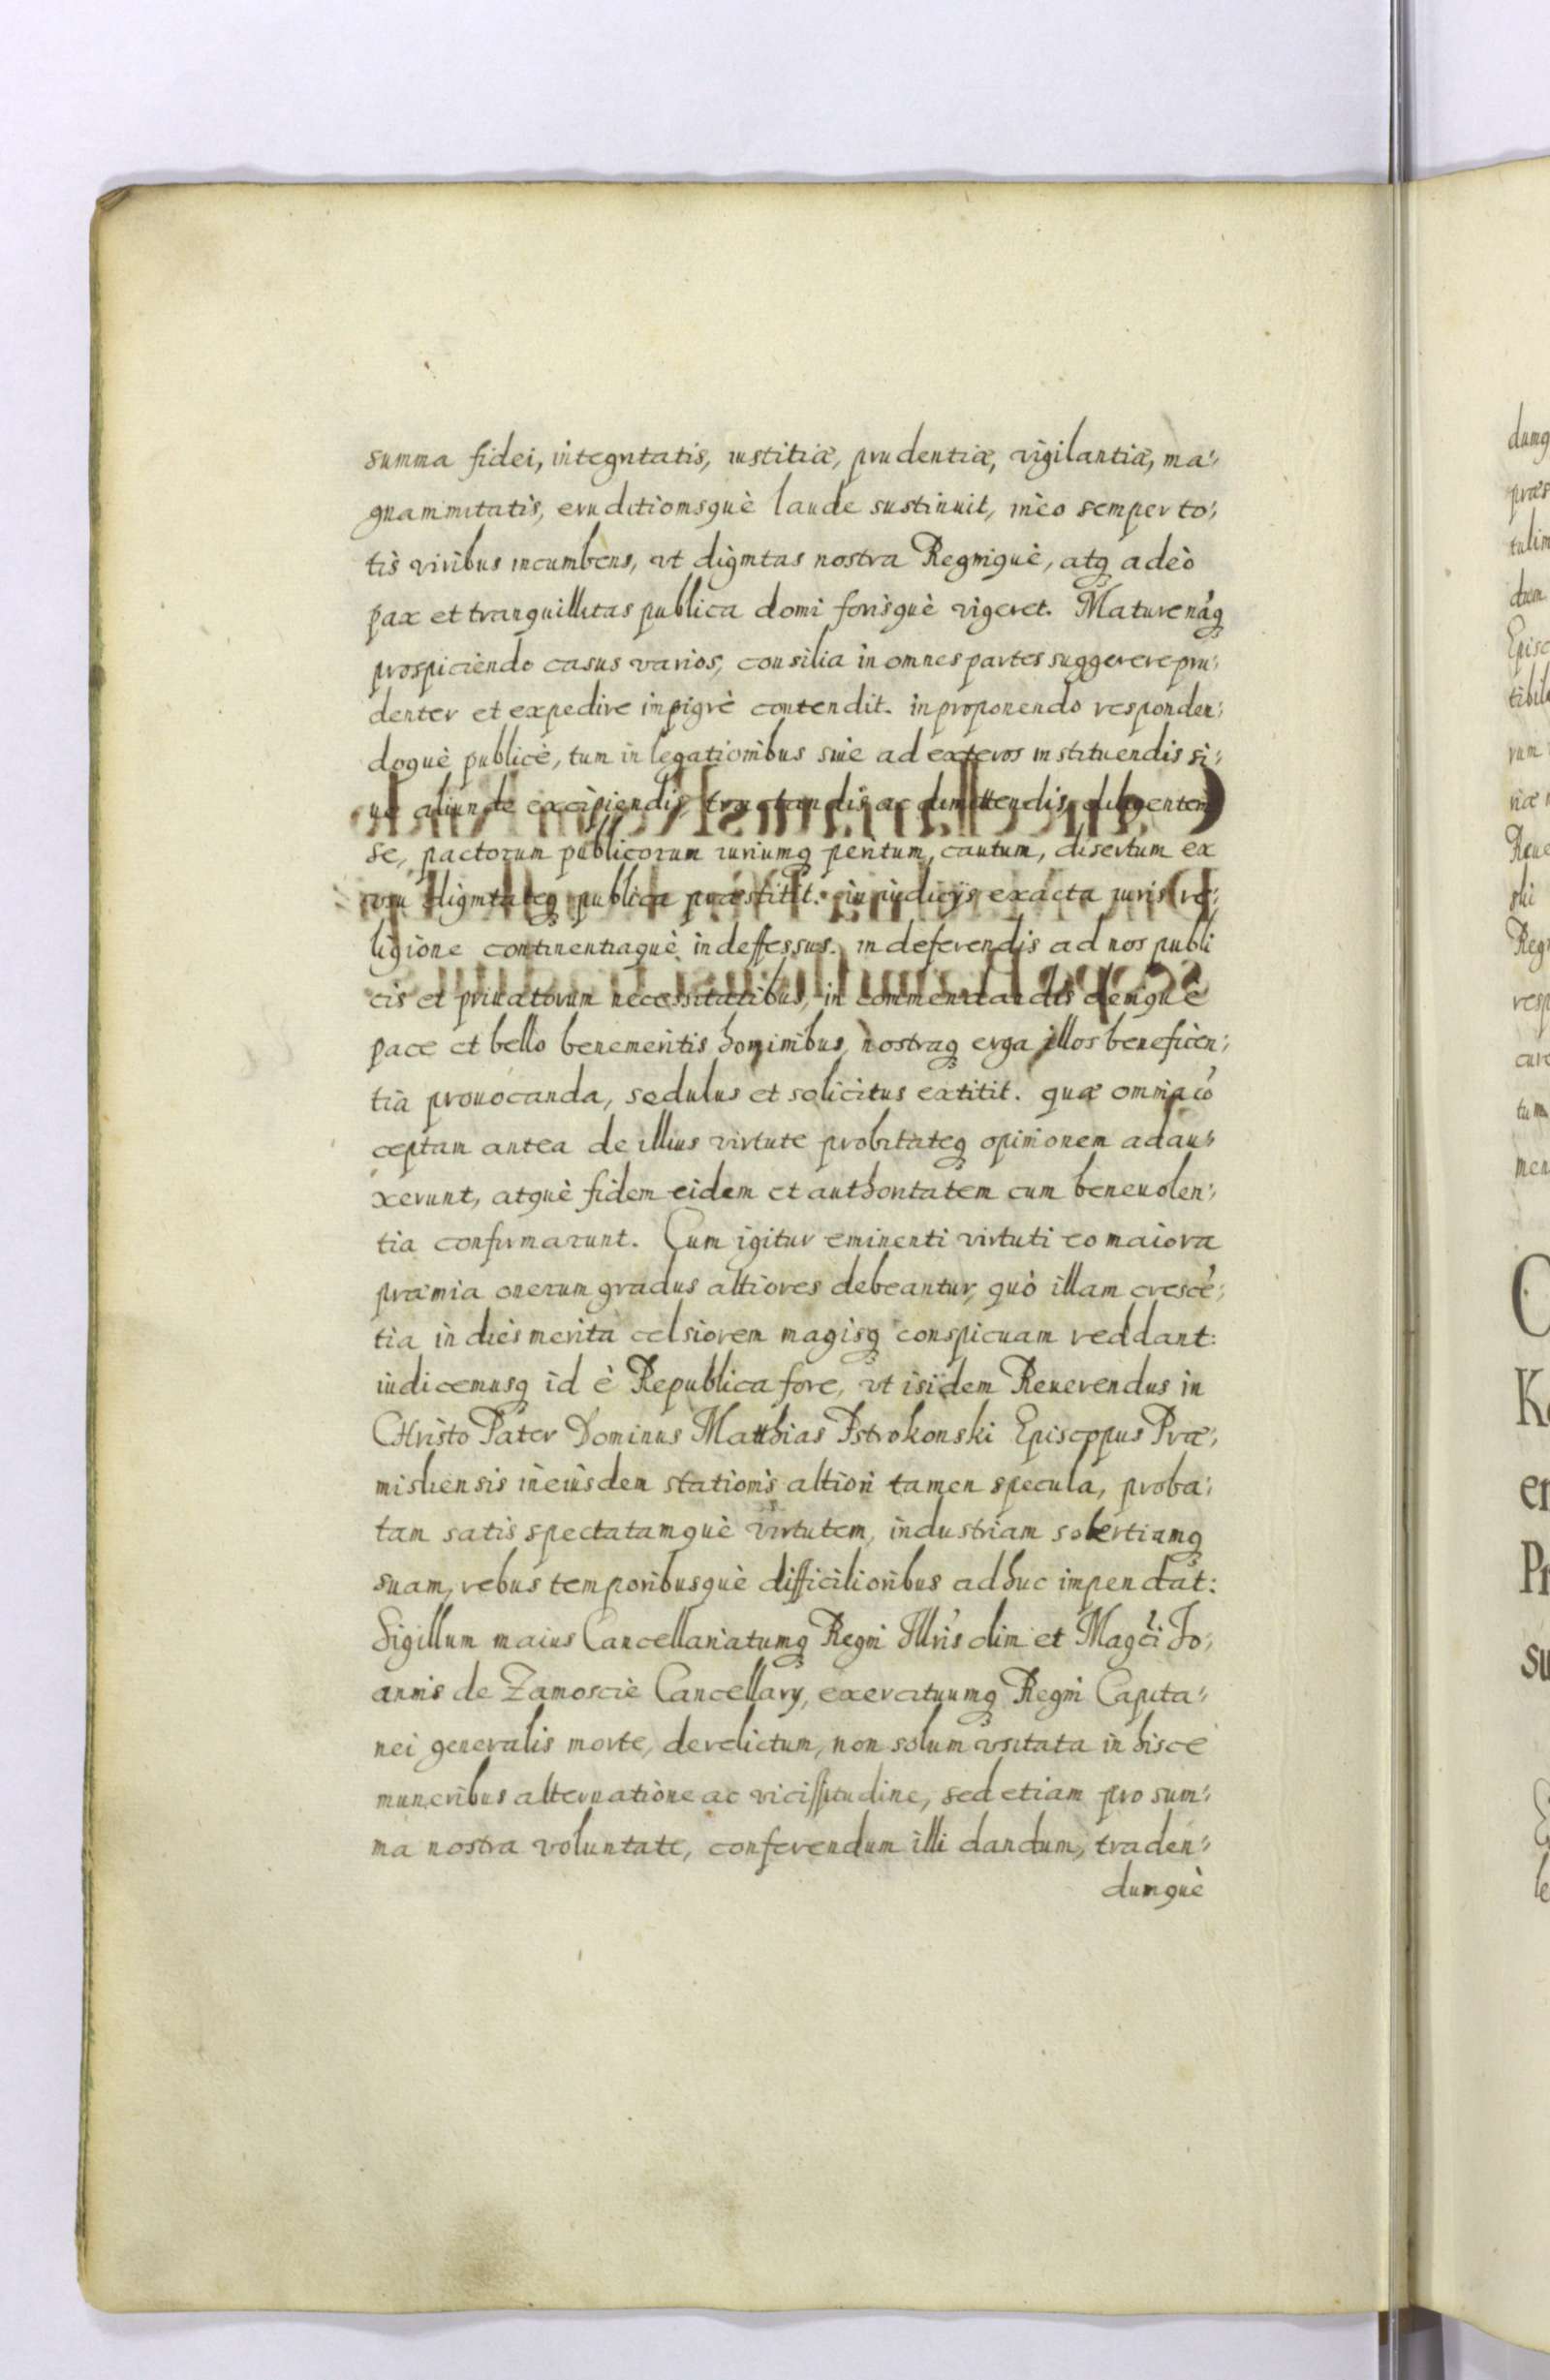 summa fidei, integritatis, iustitiæ, prudentiæ, vigilantiæ, ma:
gnanimitatis, eruditionisquè laude sustinuit, in eo semper to:
tis viribus incumbens, vt dignitas nostra Regnique, atq adeò
pax et tranquillitas publica domi forisquè vigeret. Mature náq
prospiciendo casus varios, consilia in omnes partes suggerere pru:
denter et expedire impigrè contendit. in proponendo responden:
doquè publicè, tum in legationibus siue ad exteros instituendis si:
ue aliunde excipiendis, tractandis ac dimittendis, diligentem
se, pactorum publicorum iuriumq peritum, cautum, disertum ex
vsu dignitateq publica præstitit. in iudicijs exacta iuris re:
ligione continentiaquè indeffessus. in deferendis ad nos publi
cis et priuatorum necessitatibus, in commendandis deniquè
pace et bello benemeritis hominibus, nostraq erga illos beneficen:
tia prouocanda, sedulus et solicitus extitit. quæ omnia có
ceptam antea de illius virtute probitateq opinionem adau:
xerunt, atquè fidem eidem et authoritatem cum beneuolen:
tia confirmarunt. Cum igitur eminenti virtuti eo maiora
præmia onerum gradus altiores debeantur, quò illam crescé:
tia in dies merita celsiorem magisq conspicuam reddant:
iudicemusq id è Republica fore, vt isidem Reuerendus in
CHristo Pater Dominus Matthias Pstrokonski Episcopus Præ:
misliensis in eiusdem stationis altiori tamen specula, proba:
tam satis spectatamquè virtutem, industriam solertiamq
suam, rebus temporibusquè difficilioribus adhuc impendat:
Sigillum maius Cancellariatumq Regni Illris olim et Magci Jo:
annis de Zamoscie Cancellarij, exercituumq Regni Capita:
nei generalis morte, derelictum, non solum vsitata in hisce
muneribus alternatione ac vicissitudine, sed etiam pro sum:
ma nostra voluntate, conferendum illi dandum, traden:
dumquè